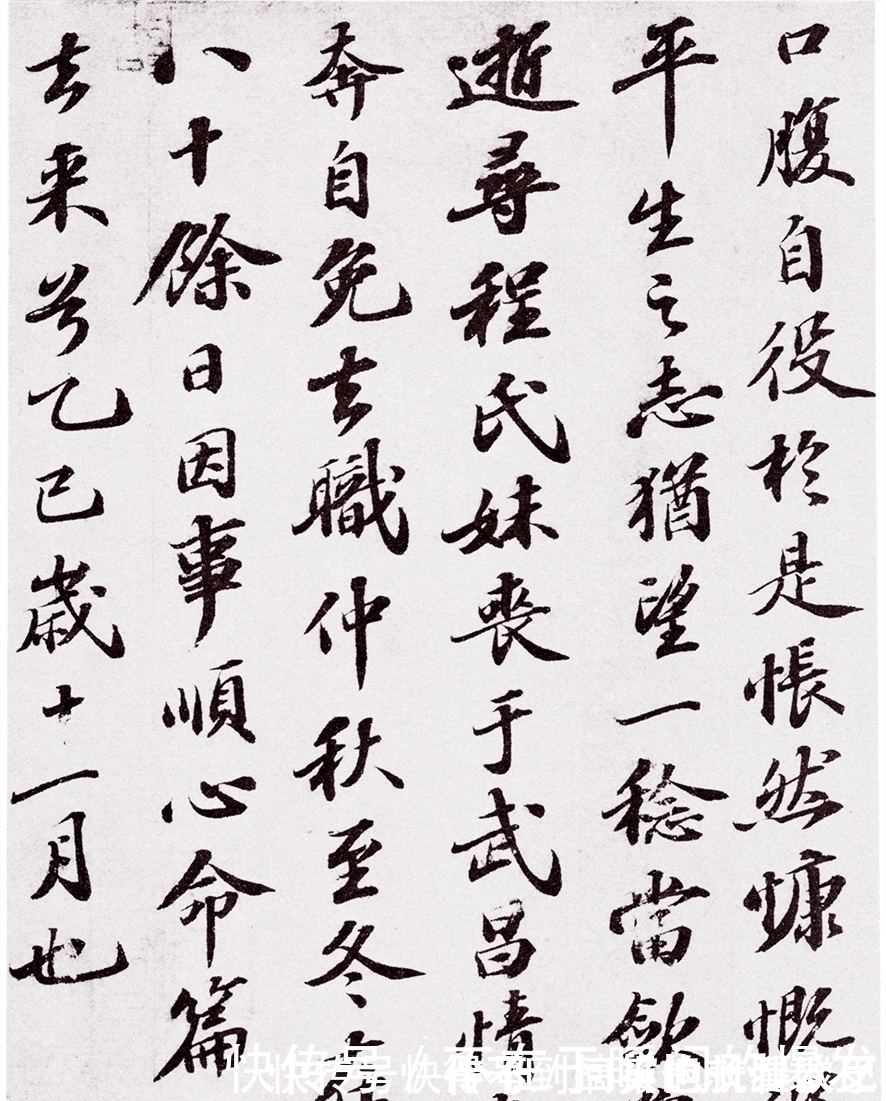 口腹自役於是悵然慷慨
平生之志猶望一稔當歛
逝尋程氏妹喪于武昌情
奔自免去職仲秋至冬
八十餘日因事順心命篇
去来兮乙巳歲十一月也
快传号/